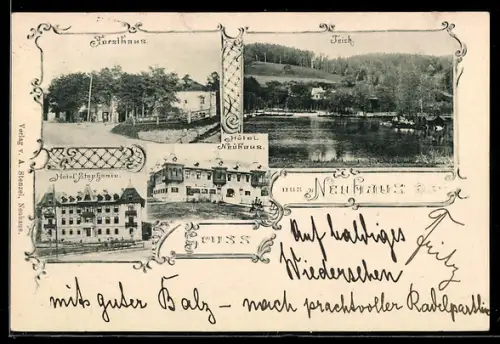 Forsthaus.
Teich.
Hôtel Neuhaus.
Hôtel Stephanie.
Gruss aus Neuhaus
Verlag v. A. Stenzel, Neuhaus.
Auf baldiges
Wiedersehen
Fritz
mit guter Balz – nach prachtvoller